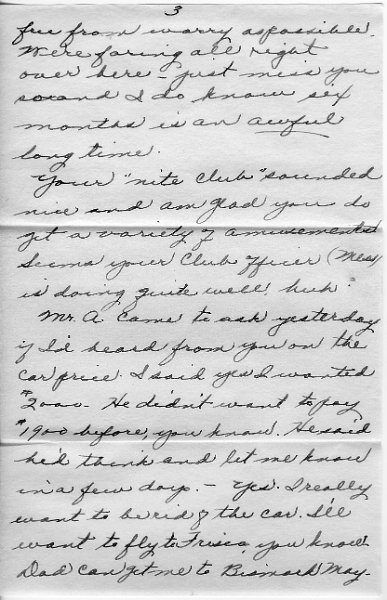 3
free from worry as possible.
We're faring all right
over here — just miss you
so and I do know six
months is an awful
long time.
Your "nite club" sounded
nice and am glad you do
get a variety of amusements.
Seems your Club Officer (Mess)
is doing quite well, huh.
Mr. A. came to ask yesterday
if I'd heard from you on the
car price. I said yes I wanted
$2000. He didn't want to pay
$1900 before, you know. He said
he'd think and let me know
in a few days. — Yes. I really
want to be rid of the car. I'll
want to fly to Frisco, you know.
Dad can get me to Bismarck May-